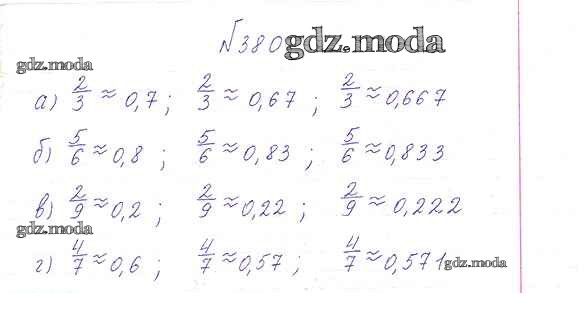 №380 gdz.moda
gdz.moda
а) 2/3 ≈ 0,7; 2/3 ≈ 0,67; 2/3 ≈ 0,667
б) 5/6 ≈ 0,8; 5/6 ≈ 0,83; 5/6 ≈ 0,833
в) 2/9 ≈ 0,2; 2/9 ≈ 0,22; 2/9 ≈ 0,222
gdz.moda
г) 4/7 ≈ 0,6; 4/7 ≈ 0,57; 4/7 ≈ 0,571 gdz.moda